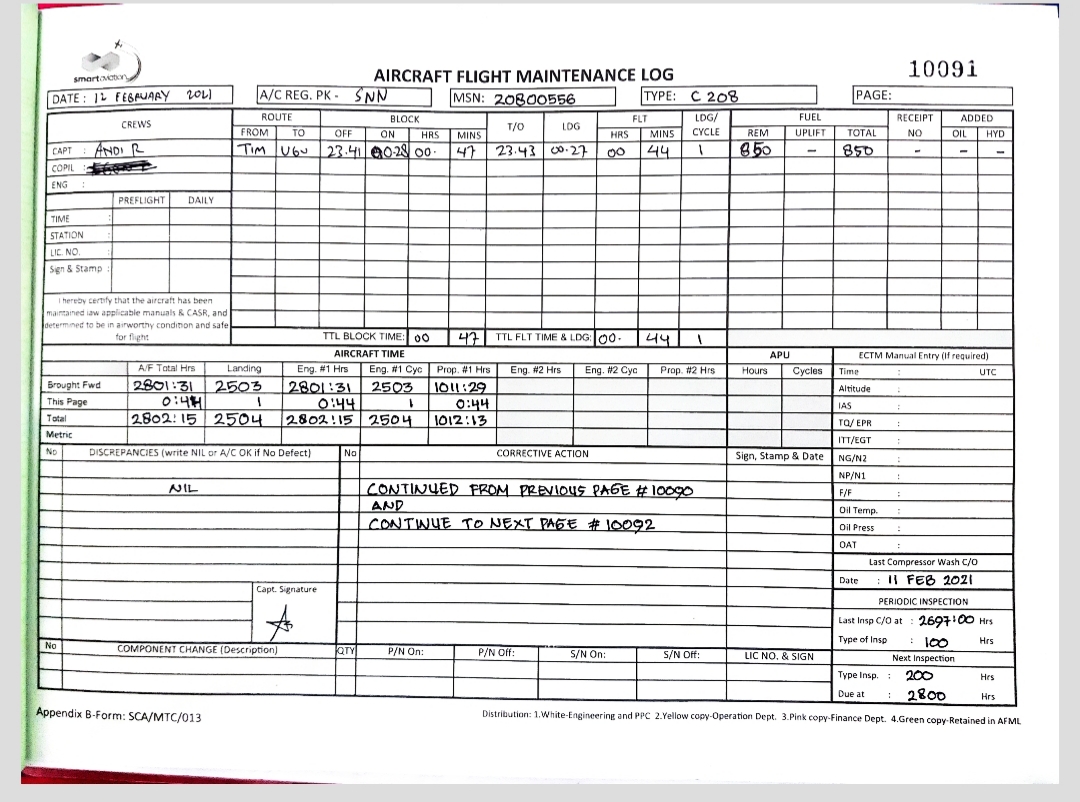 smartaviation
AIRCRAFT FLIGHT MAINTENANCE LOG
10091
DATE : 12 FEBRUARY 2021 A/C REG. PK - SNN MSN: 20800556 TYPE: C 208 PAGE:
CREWS ROUTE BLOCK T/O LDG FLT LDG/ CYCLE FUEL RECEIPT NO ADDED
FROM TO OFF ON HRS MINS HRS MINS REM UPLIFT TOTAL OIL HYD
CAPT : ANDI R TIM UGU 23.41 00.28 00. 47 23.43 00.27 00 44 1 850 - 850 - - -
COPIL :
ENG :
PREFLIGHT DAILY
TIME :
STATION :
LIC. NO. :
Sign & Stamp :
I hereby certify that the aircraft has been
maintained iaw applicable manuals & CASR, and
determined to be in airworthy condition and safe
for flight
TTL BLOCK TIME: 00 47 TTL FLT TIME & LDG: 00. 44 1
AIRCRAFT TIME APU ECTM Manual Entry (If required)
A/F Total Hrs Landing Eng. #1 Hrs Eng. #1 Cyc Prop. #1 Hrs Eng. #2 Hrs Eng. #2 Cyc Prop. #2 Hrs Hours Cycles Time : UTC
Brought Fwd 2801:31 2503 2801:31 2503 1011:29 Altitude :
This Page 0:44 1 0:44 1 0:44 IAS :
Total 2802:15 2504 2802:15 2504 1012:13 TQ/ EPR :
Metric ITT/EGT :
No DISCREPANCIES (write NIL or A/C OK if No Defect) No CORRECTIVE ACTION Sign, Stamp & Date NG/N2 :
NP/N1 :
NIL CONTINUED FROM PREVIOUS PAGE # 10090 F/F :
AND Oil Temp. :
CONTINUE TO NEXT PAGE # 10092 Oil Press :
OAT :
Last Compressor Wash C/O
Date : 11 FEB 2021
Capt. Signature
PERIODIC INSPECTION
Last Insp C/O at : 2697:00 Hrs
Type of Insp : 100 Hrs
No COMPONENT CHANGE (Description) QTY P/N On: P/N Off: S/N On: S/N Off: LIC NO. & SIGN Next Inspection
Type Insp. : 200 Hrs
Due at : 2800 Hrs
Appendix B-Form: SCA/MTC/013
Distribution: 1.White-Engineering and PPC 2.Yellow copy-Operation Dept. 3.Pink copy-Finance Dept. 4.Green copy-Retained in AFML